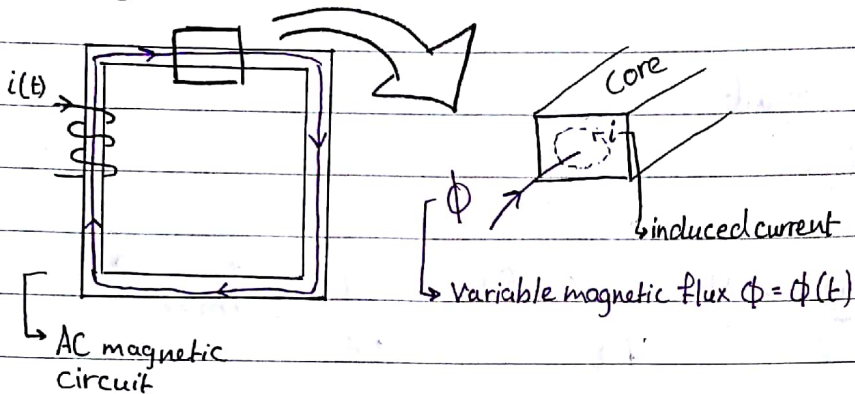 i(t)
Core
i
ϕ
induced current
Variable magnetic flux ϕ = ϕ(t)
AC magnetic
circuit